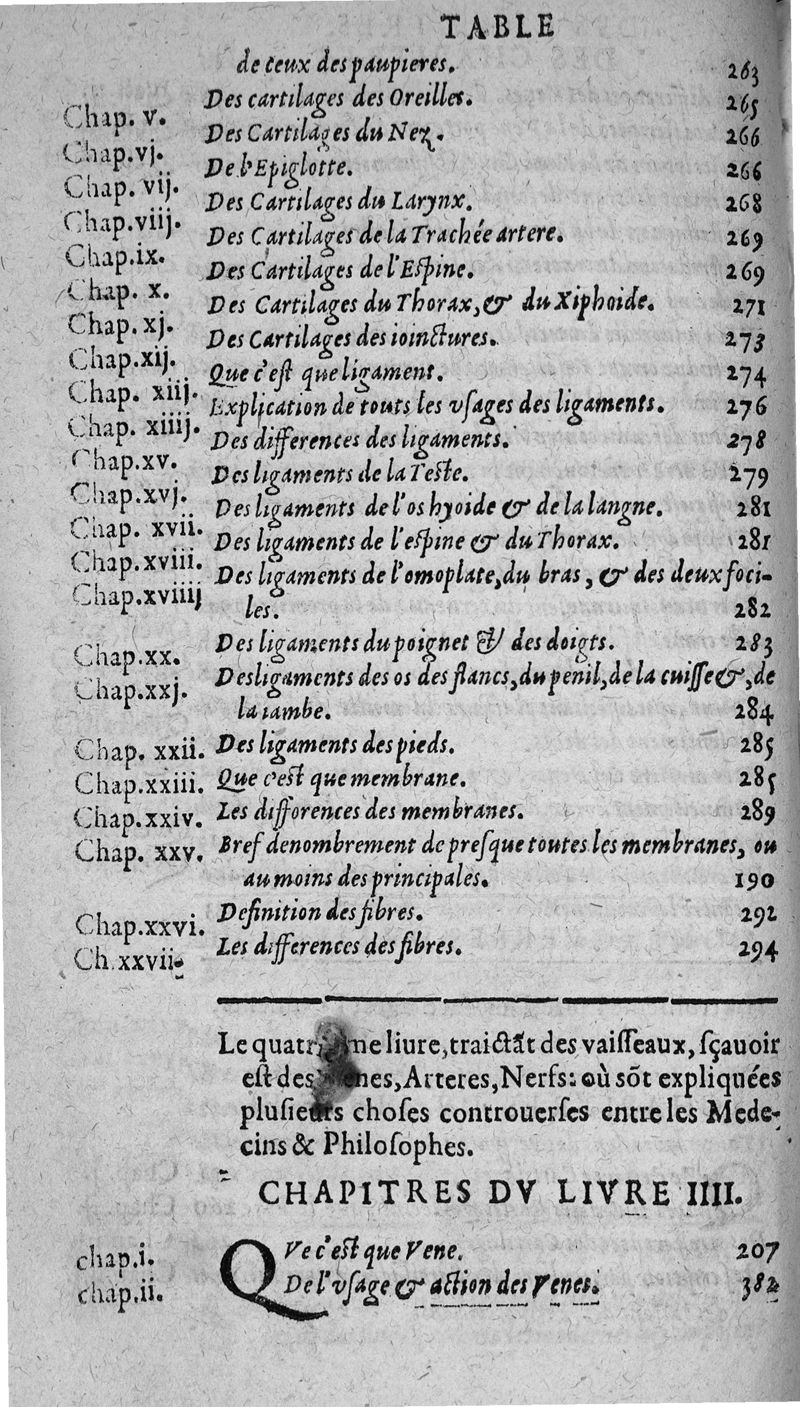 TABLE
de ceux des paupieres. 263
Chap. v. Des cartilages des Oreilles. 265
Chap.vj. Des Cartilages du Nez. 266
Chap. vij. De l'Epiglotte. 266
Chap.viij. Des Cartilages du Larynx. 268
Chap.ix. Des Cartilages de la Trachée artere. 269
Chap. x. Des Cartilages de l'Espine. 269
Chap. xj. Des Cartilages du Thorax, & du Xiphoide. 271
Chap.xij. Des Cartilages des ioinctures. 273
Chap. xiij. Que c'est que ligament. 274
Chap. xiiij. Explication de touts les vsages des ligaments. 276
Chap.xv. Des differences des ligaments. 278
Chap.xvj. Des ligaments de la Teste. 279
Chap. xvii. Des ligaments de l'os hyoide & de la langne. 281
Chap.xviii. Des ligaments de l'espine & du Thorax. 281
Chap.xviiij Des ligaments de l'omoplate, du bras, & des deux foci-
les. 282
Chap.xx. Des ligaments du poignet & des doigts. 283
Chap.xxj. Des ligaments des os des flancs, du penil, de la cuisse &, de
la iambe. 284
Chap. xxii. Des ligaments des pieds. 285
Chap.xxiii. Que c'est que membrane. 285
Chap.xxiv. Les differences des membranes. 289
Chap. xxv. Bref denombrement de presque toutes les membranes, ou
au moins des principales. 190
Chap.xxvi. Definition des fibres. 292
Ch.xxvii. Les differences des fibres. 294
Le quatr me liure, traictãt des vaisseaux, sçauoir
est des nes, Arteres, Nerfs: où sõt expliquées
plusieurs choses controuerses entre les Mede-
cins & Philosophes.
CHAPITRES DV LIVRE IIII.
chap.i. QVe c'est que Vene. 207
chap.ii. De l'vsage & action des Venes. 382